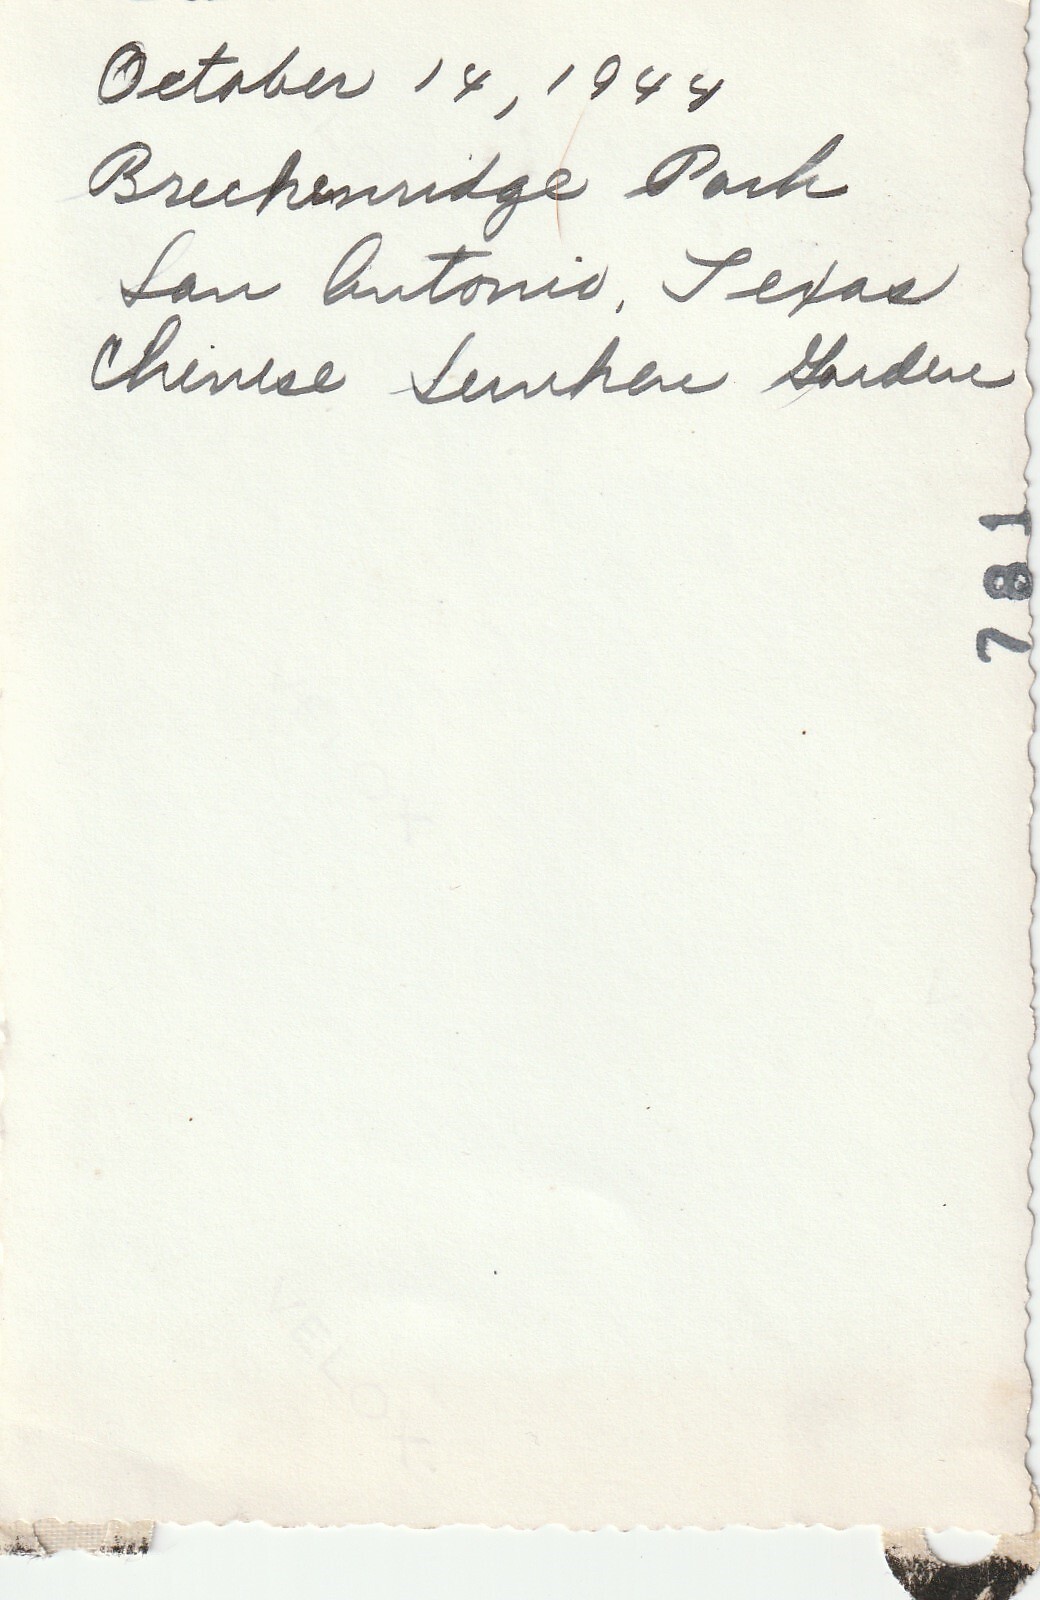 October 14, 1944
Breckenridge Park
San Antonio, Texas
Chinese Sunken Garden
781